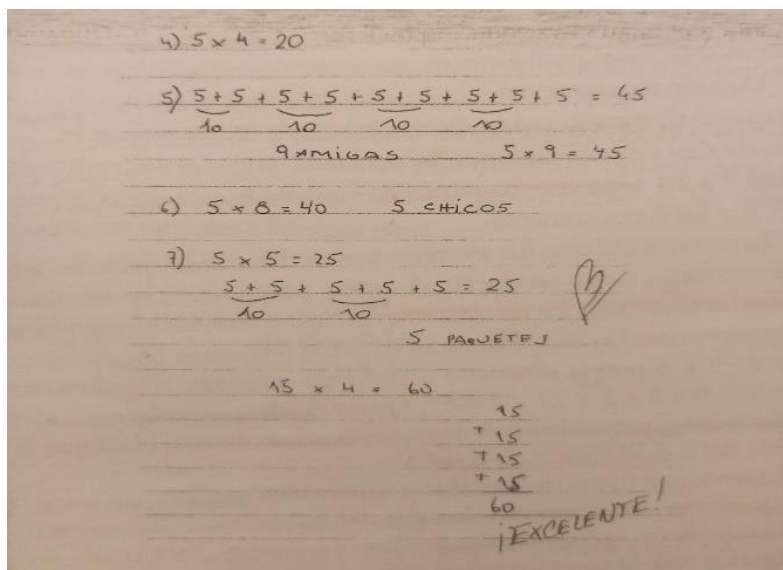 4) 5 × 4 = 20
5) 5 + 5 + 5 + 5 + 5 + 5 + 5 + 5 + 5 = 45
10 10 10 10
9 AMIGAS 5 × 9 = 45
6) 5 × 8 = 40 5 CHICOS
7) 5 × 5 = 25
5 + 5 + 5 + 5 + 5 = 25
10 10
5 PAQUETES
15 × 4 = 60
15
+ 15
+ 15
+ 15
60
¡EXCELENTE!